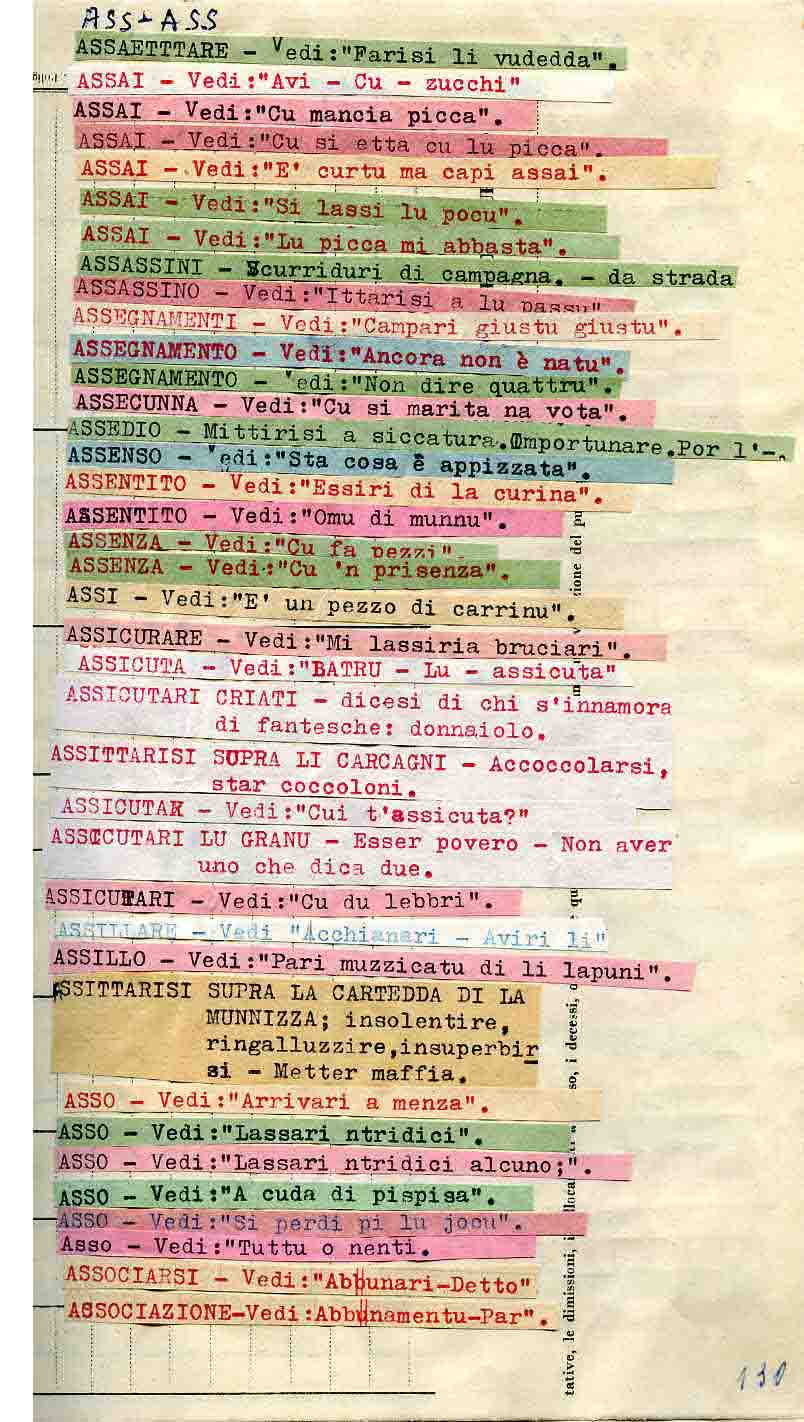 ASS-ASS
ASSAETTTARE - Vedi:"Farisi li vudedda".
ASSAI - Vedi:"Avi - Cu - zucchi"
ASSAI - Vedi:"Cu mancia picca".
ASSAI - Vedi:"Cu si etta cu lu picca".
ASSAI - Vedi:"E' curtu ma capi assai".
ASSAI - Vedi:"Si lassi lu pocu".
ASSAI - Vedi:"Lu picca mi abbasta".
ASSASSINI - Scurriduri di campagna. - da strada
ASSASSINO - Vedi:"Ittarisi a lu passu"
ASSEGNAMENTI - Vedi:"Campari giustu giustu".
ASSEGNAMENTO - Vedi:"Ancora non è natu".
ASSEGNAMENTO - Vedi:"Non dire quattru".
ASSECUNNA - Vedi:"Cu si marita na vota".
ASSEDIO - Mittirisi a siccatura.Importunare.Por l'-.
ASSENSO - Vedi:"Sta cosa è appizzata".
ASSENTITO - Vedi:"Essiri di la curina".
ASSENTITO - Vedi:"Omu di munnu".
ASSENZA - Vedi:"Cu fa pezzi".
ASSENZA - Vedi:"Cu 'n prisenza".
ASSI - Vedi:"E' un pezzo di carrinu".
ASSICURARE - Vedi:"Mi lassiria bruciari".
ASSICUTA - Vedi:"BATRU - Lu - assicuta"
ASSICUTARI CRIATI - dicesi di chi s'innamora
di fantesche: donnaiolo.
ASSITTARISI SUPRA LI CARCAGNI - Accoccolarsi,
star coccoloni.
ASSICUTAR - Vedi:"Cui t'assicuta?"
ASSICUTARI LU GRANU - Esser povero - Non aver
uno che dica due.
ASSICUTARI - Vedi:"Cu du lebbri".
ASSILLARE - Vedi "Acchianari - Aviri li"
ASSILLO - Vedi:"Pari muzzicatu di li lapuni".
ASSITTARISI SUPRA LA CARTEDDA DI LA
MUNNIZZA; insolentire,
ringalluzzire,insuperbir
si - Metter maffia.
ASSO - Vedi:"Arrivari a menza".
ASSO - Vedi:"Lassari ntridici".
ASSO - Vedi:"Lassari ntridici alcuno;".
ASSO - Vedi:"A cuda di pispisa".
ASSO - Vedi:"Si perdi pi lu jocu".
Asso - Vedi:"Tuttu o nenti.
ASSOCIARSI - Vedi:"Abbunari-Detto"
ASSOCIAZIONE-Vedi:Abbunamentu-Par".
tative, le dimissioni,
so, i decessi,
zione del pu
130